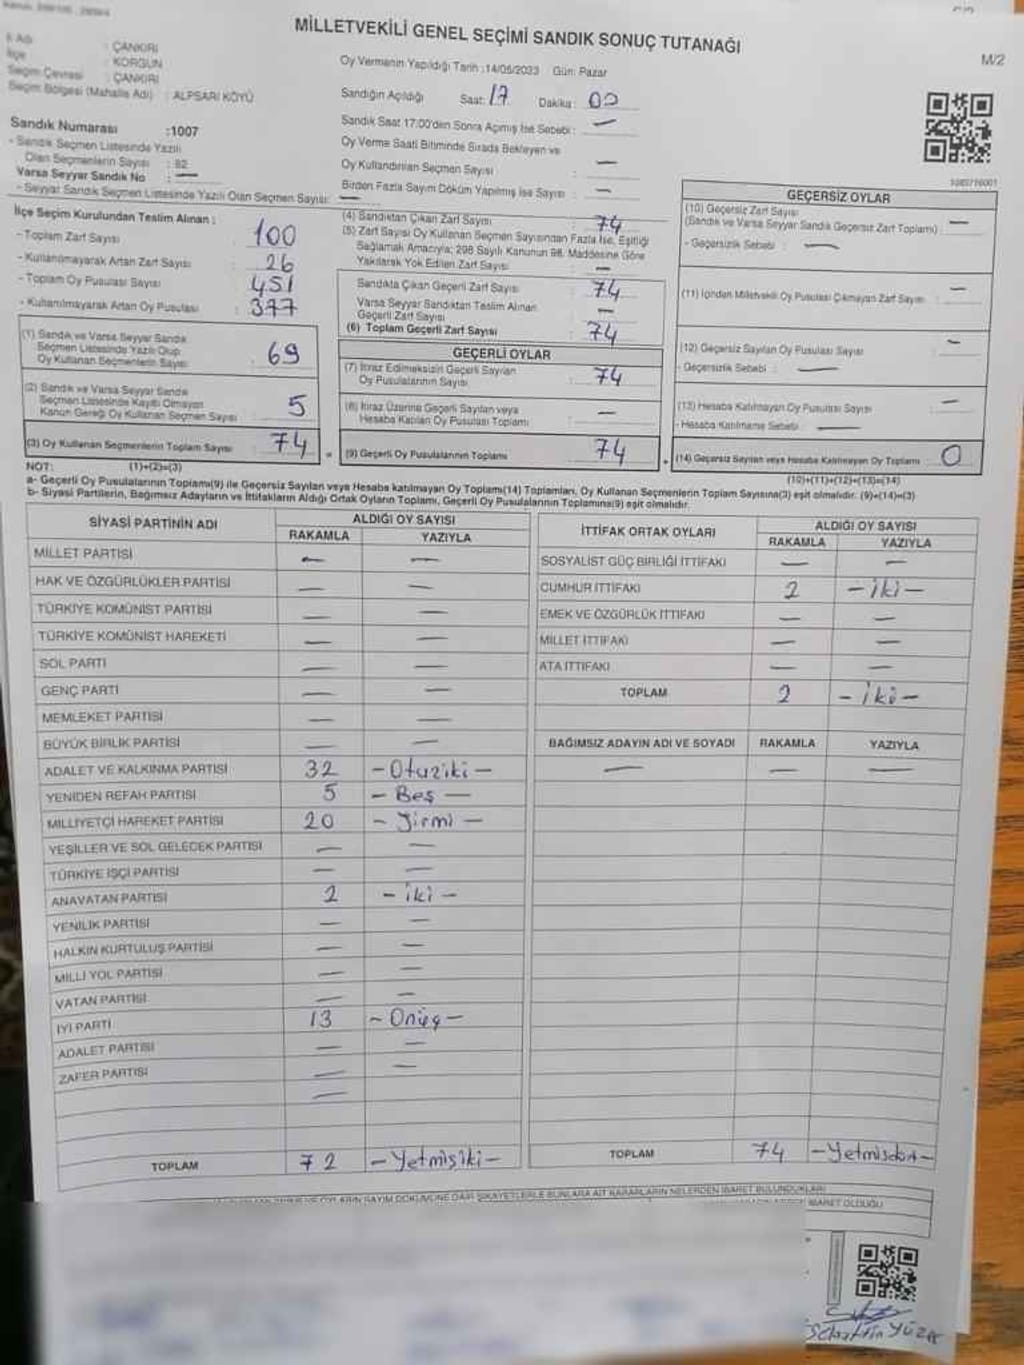 MİLLETVEKİLİ GENEL SEÇİMİ SANDIK SONUÇ TUTANAĞI
M/2
İl Adı : ÇANKIRI
İlçe : KORGUN
Seçim Çevresi : ÇANKIRI
Seçim Bölgesi (Mahalle Adı) : ALPSARI KÖYÜ
Sandık Numarası :1007
- Sandık Seçmen Listesinde Yazılı
Olan Seçmenlerin Sayısı : 82
Varsa Seyyar Sandık No : —
- Seyyar Sandık Seçmen Listesinde Yazılı Olan Seçmen Sayısı: —
Oy Vermenin Yapıldığı Tarih :14/05/2023 Gün: Pazar
Sandığın Açıldığı Saat: 17 Dakika: 00
Sandık Saat 17:00'den Sonra Açılmış İse Sebebi : —
Oy Verme Saati Bitiminde Sırada Bekleyen ve
Oy Kullandırılan Seçmen Sayısı : —
Birden Fazla Sayım Döküm Yapılmış İse Sayısı : —
İlçe Seçim Kurulundan Teslim Alınan :
- Toplam Zarf Sayısı : 100
- Kullanılmayarak Artan Zarf Sayısı : 26
- Toplam Oy Pusulası Sayısı : 451
- Kullanılmayarak Artan Oy Pusulası : 377
(1) Sandık ve Varsa Seyyar Sandık
Seçmen Listesinde Yazılı Olup
Oy Kullanan Seçmenlerin Sayısı : 69
(2) Sandık ve Varsa Seyyar Sandık
Seçmen Listesinde Kayıtlı Olmayan
Kanun Gereği Oy Kullanan Seçmen Sayısı : 5
(3) Oy Kullanan Seçmenlerin Toplam Sayısı : 74 =
(4) Sandıktan Çıkan Zarf Sayısı : 74
(5) Zarf Sayısı Oy Kullanan Seçmen Sayısından Fazla İse, Eşitliği
Sağlamak Amacıyla; 298 Sayılı Kanunun 98. Maddesine Göre
Yakılarak Yok Edilen Zarf Sayısı : —
Sandıkta Çıkan Geçerli Zarf Sayısı : 74
Varsa Seyyar Sandıktan Teslim Alınan
Geçerli Zarf Sayısı : —
(6) Toplam Geçerli Zarf Sayısı : 74
GEÇERLİ OYLAR
(7) İtiraz Edilmeksizin Geçerli Sayılan
Oy Pusulalarının Sayısı : 74
(8) İtiraz Üzerine Geçerli Sayılan veya
Hesaba Katılan Oy Pusulaları Toplamı : —
(9) Geçerli Oy Pusulalarının Toplamı : 74 +
GEÇERSİZ OYLAR
(10) Geçersiz Zarf Sayısı
(Sandık ve Varsa Seyyar Sandık Geçersiz Zarf Toplamı) : —
- Geçersizlik Sebebi : —
(11) İçinden Milletvekili Oy Pusulası Çıkmayan Zarf Sayısı : —
(12) Geçersiz Sayılan Oy Pusulası Sayısı : —
- Geçersizlik Sebebi : —
(13) Hesaba Katılmayan Oy Pusulası Sayısı : —
- Hesaba Katılmama Sebebi : —
(14) Geçersiz Sayılan veya Hesaba Katılmayan Oy Toplamı : 0
NOT: (1)+(2)=(3)
(10)+(11)+(12)+(13)=(14)
a- Geçerli Oy Pusulalarının Toplamı(9) ile Geçersiz Sayılan veya Hesaba katılmayan Oy Toplamı(14) Toplamları, Oy Kullanan Seçmenlerin Toplam Sayısına(3) eşit olmalıdır. (9)+(14)=(3)
b- Siyasi Partilerin, Bağımsız Adayların ve İttifakların Aldığı Ortak Oyların Toplamı, Geçerli Oy Pusulalarının Toplamına(9) eşit olmalıdır.
SİYASİ PARTİNİN ADI
ALDIĞI OY SAYISI
RAKAMLA YAZIYLA
MİLLET PARTİSİ — —
HAK VE ÖZGÜRLÜKLER PARTİSİ — —
TÜRKİYE KOMÜNİST PARTİSİ — —
TÜRKİYE KOMÜNİST HAREKETİ — —
SOL PARTİ — —
GENÇ PARTİ — —
MEMLEKET PARTİSİ — —
BÜYÜK BİRLİK PARTİSİ — —
ADALET VE KALKINMA PARTİSİ 32 -Otuziki-
YENİDEN REFAH PARTİSİ 5 -Beş-
MİLLİYETÇİ HAREKET PARTİSİ 20 -Yirmi-
YEŞİLLER VE SOL GELECEK PARTİSİ — —
TÜRKİYE İŞÇİ PARTİSİ — —
ANAVATAN PARTİSİ 2 -iki-
YENİLİK PARTİSİ — —
HALKIN KURTULUŞ PARTİSİ — —
MİLLİ YOL PARTİSİ — —
VATAN PARTİSİ — —
İYİ PARTİ 13 -Onüç-
ADALET PARTİSİ — —
ZAFER PARTİSİ — —
—
TOPLAM 72 -Yetmişiki-
İTTİFAK ORTAK OYLARI
ALDIĞI OY SAYISI
RAKAMLA YAZIYLA
SOSYALİST GÜÇ BİRLİĞİ İTTİFAKI — —
CUMHUR İTTİFAKI 2 -iki-
EMEK VE ÖZGÜRLÜK İTTİFAKI — —
MİLLET İTTİFAKI — —
ATA İTTİFAKI — —
TOPLAM 2 -iki-
BAĞIMSIZ ADAYIN ADI VE SOYADI RAKAMLA YAZIYLA
— — —
TOPLAM 74 -Yetmisdört-